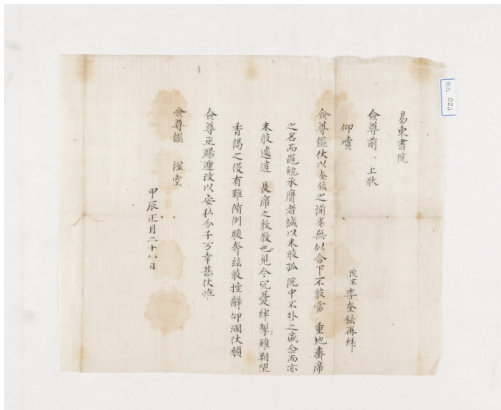 易東書院
僉尊前 上狀
仰瀆
院末 李奎鉉再拜
僉尊鑑伏以奎鉉之謭劣無似合下不敢當 重地齋席
之名而黽勉承膺者誠以未敢孤 院中不外之盛念而亦
未敢遽違 長席之敦敎也見今冗憂絆掣雖朔望
香謁之役有難循例駿奔玆敢控辭仰溷伏願
僉尊亟賜遞改以安私分千万幸甚伏惟
僉尊鑑
甲辰正月二十八日